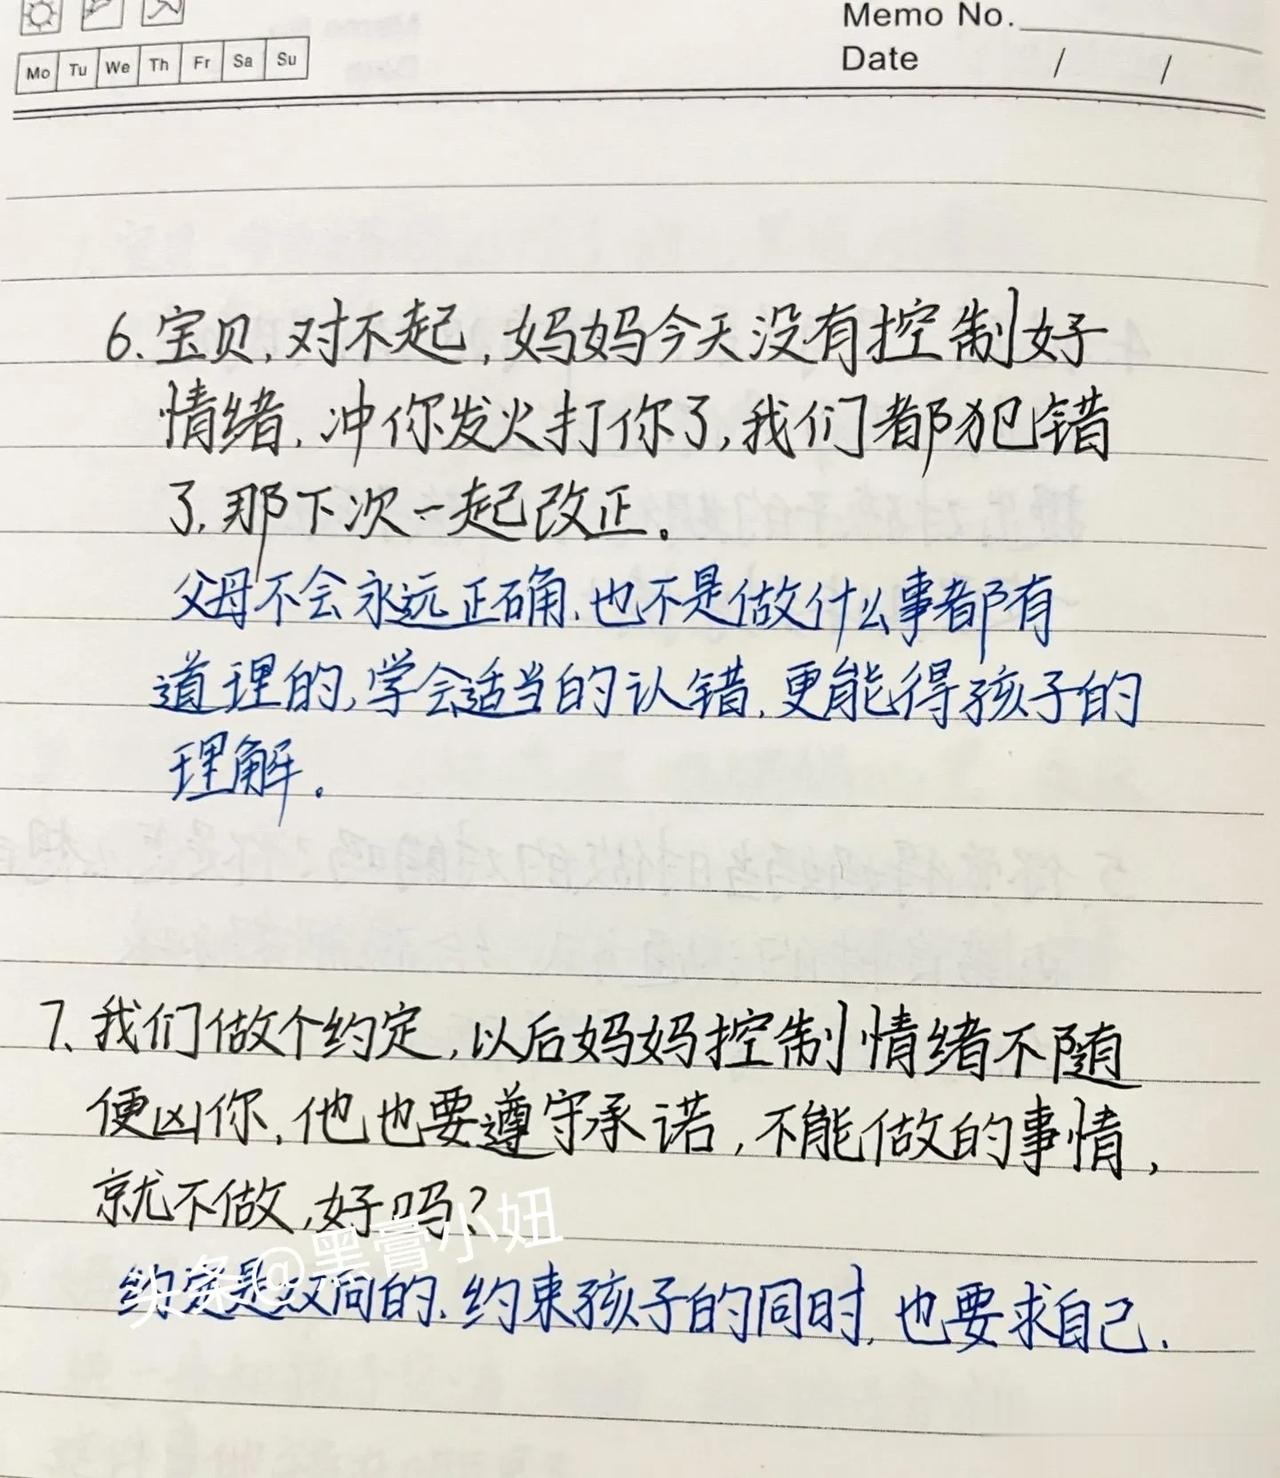 Memo No.
Mo Tu We Th Fr Sa Su
Date / /
6.宝贝,对不起,妈妈今天没有控制好
情绪,冲你发火打你了,我们都犯错
了,那下次一起改正。
父母不会永远正确,也不是做什么事都有
道理的,学会适当的认错,更能得孩子的
理解。
7、我们做个约定,以后妈妈控制情绪不随
便凶你,他也要遵守承诺,不能做的事情,
就不做,好吗?
约定是双向的,约束孩子的同时,也要求自己.
头条@黑膏小妞